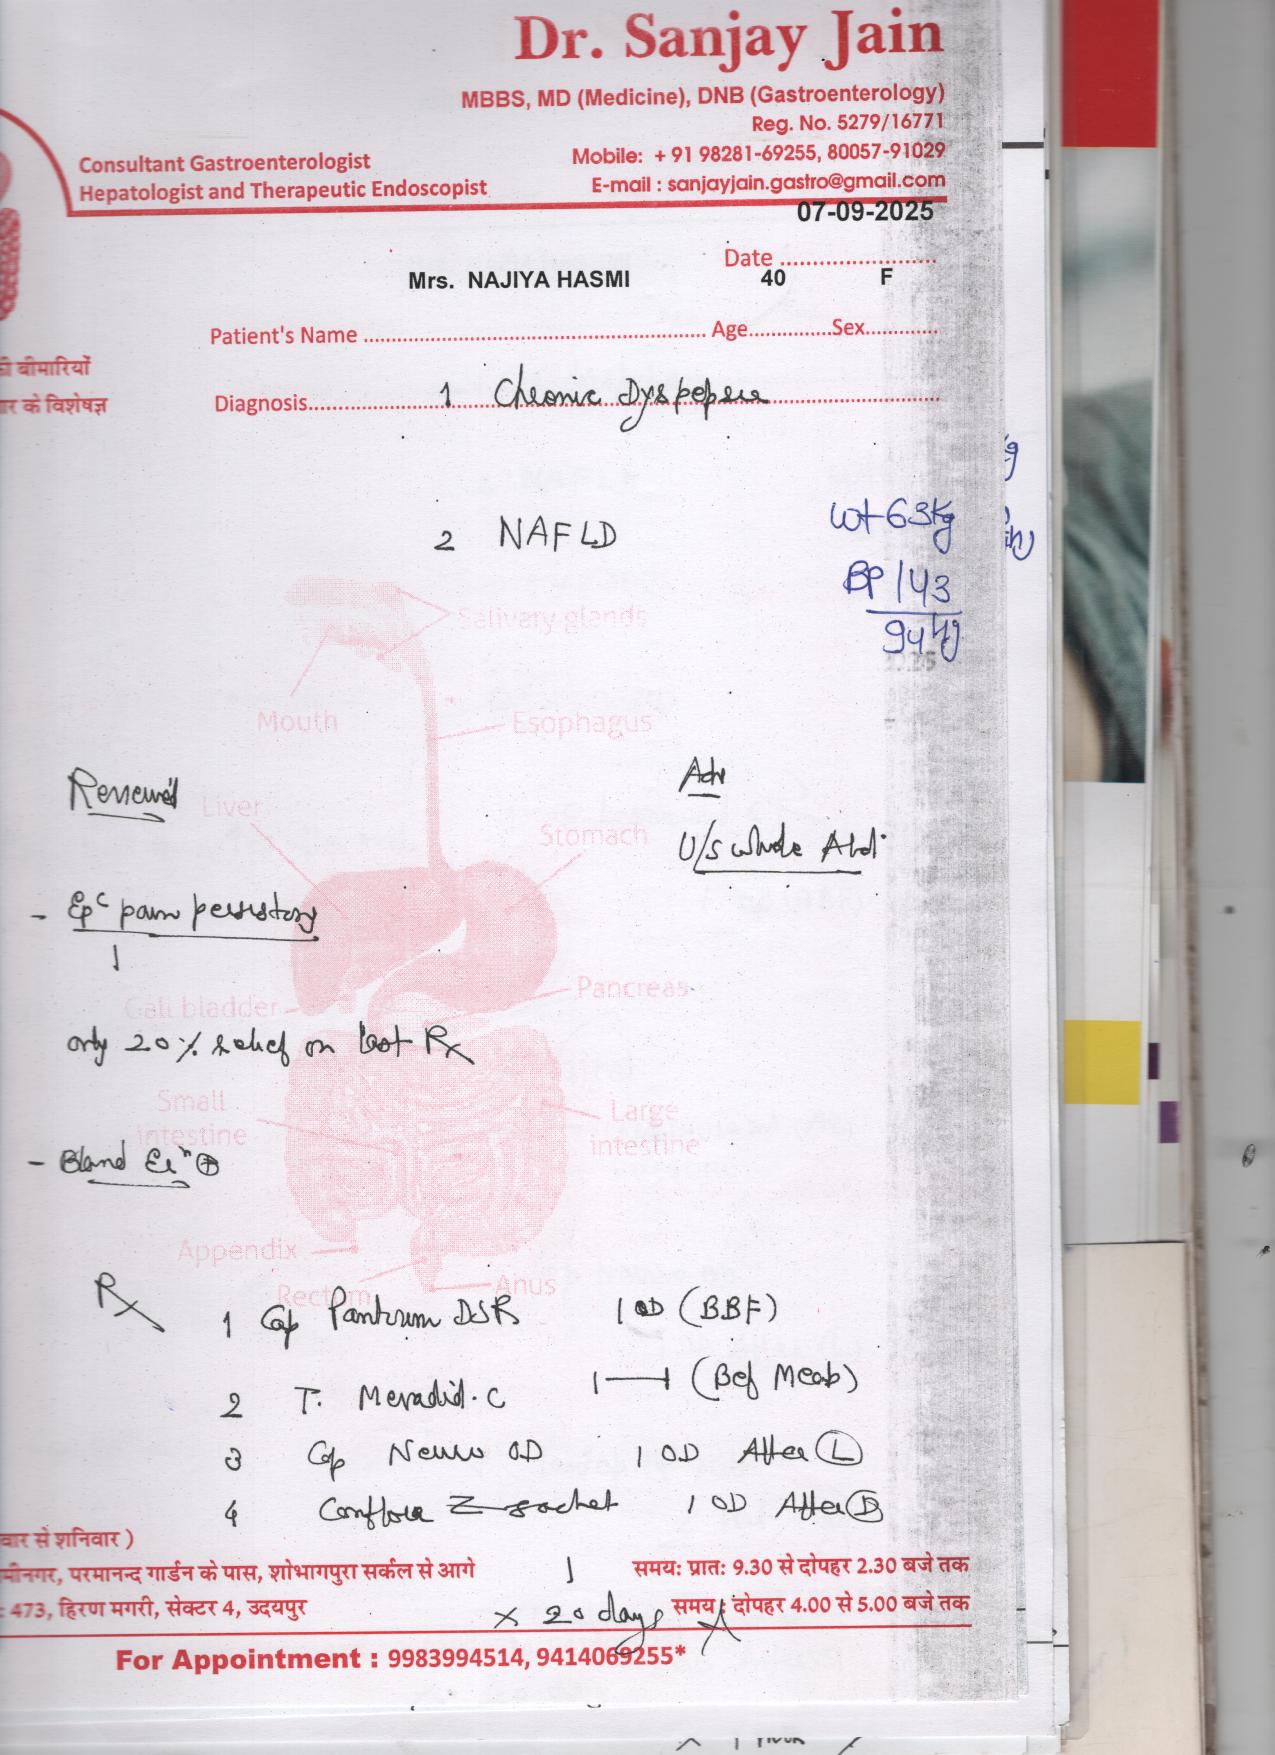 Dr. Sanjay Jain
MBBS, MD (Medicine), DNB (Gastroenterology)
Reg. No. 5279/16771
Consultant Gastroenterologist
Mobile: + 91 98281-69255, 80057-91029
Hepatologist and Therapeutic Endoscopist
E-mail : sanjayjain.gastro@gmail.com
07-09-2025
Date ........................
Mrs. NAJIYA HASMI 40 F
Patient's Name ............................................................. Age...............Sex.............
की बीमारियों
Diagnosis 1 Chronic Dyspepsia
र के विशेषज्ञ
2 NAFLD
Wt 63Kg
BP 143
94
Salivary glands
Mouth
Esophagus
Adv
Reviewed
Liver
Stomach
U/s whole Abd.
- Epc pain persisting
Pancreas
Gall bladder
only 20% relief on last Rx
Small
intestine
Large
intestine
- Bland
Appendix
Rectum
Anus
Rx
1 Cap Pantrum DSR 1 OD (BBF)
2 T. C 1—1 (Bef Meals)
3 Cap Neuro OD 1 OD After L
4 Z sachet 1 OD After B
वार से शनिवार )
मीनगर, परमानन्द गार्डन के पास, शोभागपुरा सर्कल से आगे
समय: प्रात: 9.30 से दोपहर 2.30 बजे तक
: 473, हिरण मगरी, सेक्टर 4, उदयपुर
x 20 days
समय : दोपहर 4.00 से 5.00 बजे तक
For Appointment : 9983994514, 9414069255*